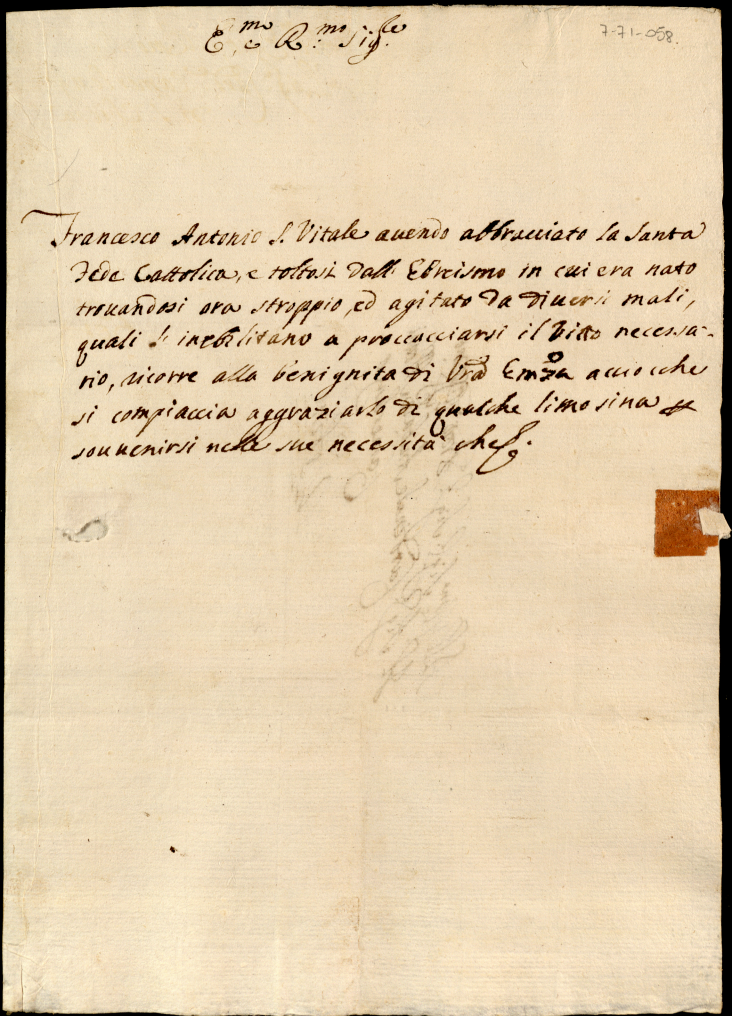 E.mo e R.mo Sig.re
7-71-058.
Francesco Antonio S. Vitale auendo abbracciato la Santa
Fede Cattolica, e toltosi dall' Ebreismo in cui era nato
trouandosi ora stroppio, ed agitato da diuersi mali,
quali l' inabilitano a proccacciarsi il Vitto necessa-
rio, ricorre alla benignità di Vra Emza acciocche
si compiaccia aggraziarlo di qualche limosina
souuenirsi nelle sue necessità che